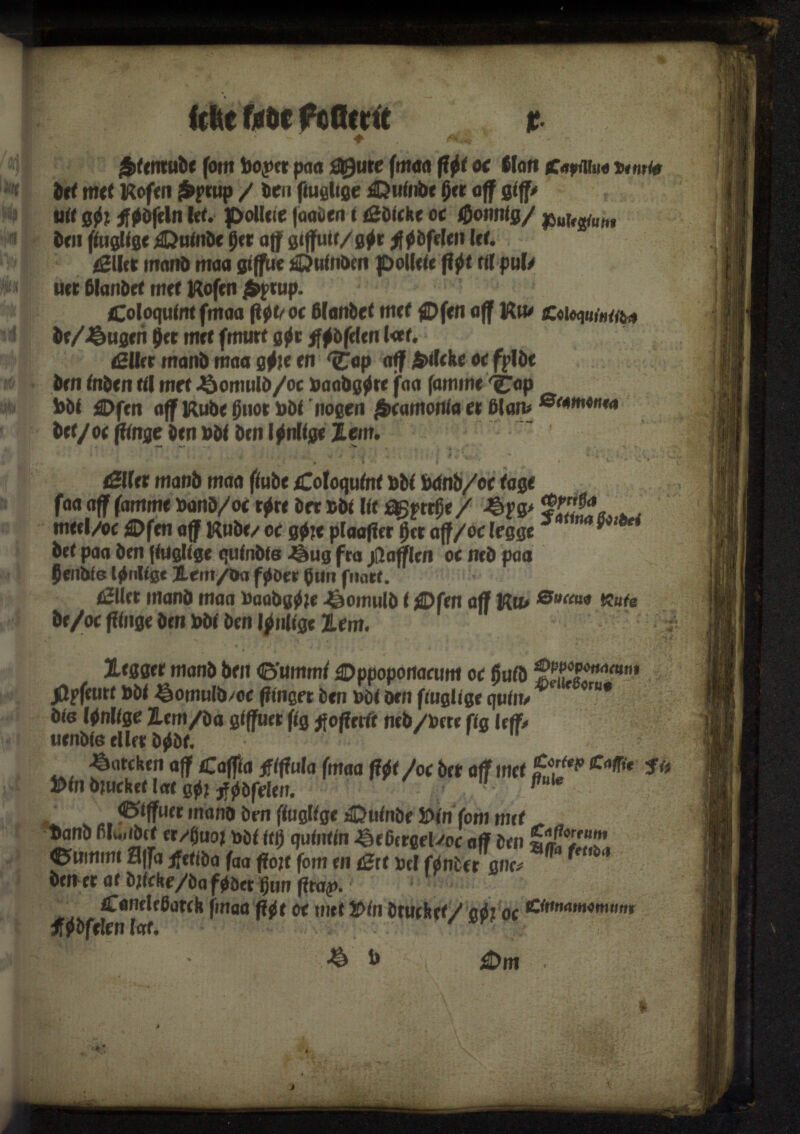 icke føde Fosterit r.
Stenrude som voxer paa Mure smaa støt oc blan Capillus Veneris
det met Rosen Syrup / den siuglige Quinde her aff giff⸗
uit gør Fødseln let. Polleie saaden i Edicke oc Honnig/ Pulegium
den siuglige Quinde her aff giffuit/gør Fødselen let.
Eller mand maa giffue Quinden Polleie støt til pul⸗
uer blandet met Rosen Syrup.
Coloquint smaa støt/oc blandet met Osen aff Ru⸗ Coloquintida
de/Haugen her met smurt gør Fødselen læt.
Eller mand maa gøre en Tap aff Silcke oc fylde
den inden til met Bomuld/oc vaadgøre saa samme Tap
vdi Osen aff Rude huor vdi nogen Scamonia er blan⸗ Scamonea
det/oc stinge den vdi den lønlige Lem.
Eller mand maa siude Coloquint vdi vand/oc tage
saa aff samme vand/oc røre der vdi lit Myrrhe / Byg⸗ Myrrha
meel/oc Osen aff Rude/oc gøre plaaster her aff/oc legge Farina Hordei
det paa den siuglige quindis Bug fra Nafflen oc ned paa
hendis lønlige Lem/da føder hun snart.
Eller mand maa vaadgøre Bomuld i Osen aff Ru⸗ Succus Rutæ
de/oc stinge den vdi den lønlige Lem.
Legger mand den Gummi Oppoponacum oc huid Oppoponacum
Nyseurt vdi Bomuld/oc stinger den vdi den siuglige quin⸗ Helleborus
dis lønlige Lem/da giffuer sig Fosterit ned/vere sig leff⸗
uendis eller dødt.
Barcken aff Cassia Fistula smaa støt /oc der aff met Cortex Cassiæ Fi
Vin drucket læt gør Fødselen. stulæ
Giffuer mand den siuglige Quinde Vin som met
vand blandet er/huor vdi iiij quintin Bebergel/oc aff den Castoreum
Gummi Assa Fetida saa stort som en Ert vel sønder gne⸗ Assa fetida
den er at dricke/da føder hun strax.
Canelebarck smaa støt oc met Vin drucket/ gør oc Cinnamomum
Fødselen læt.
B b Om